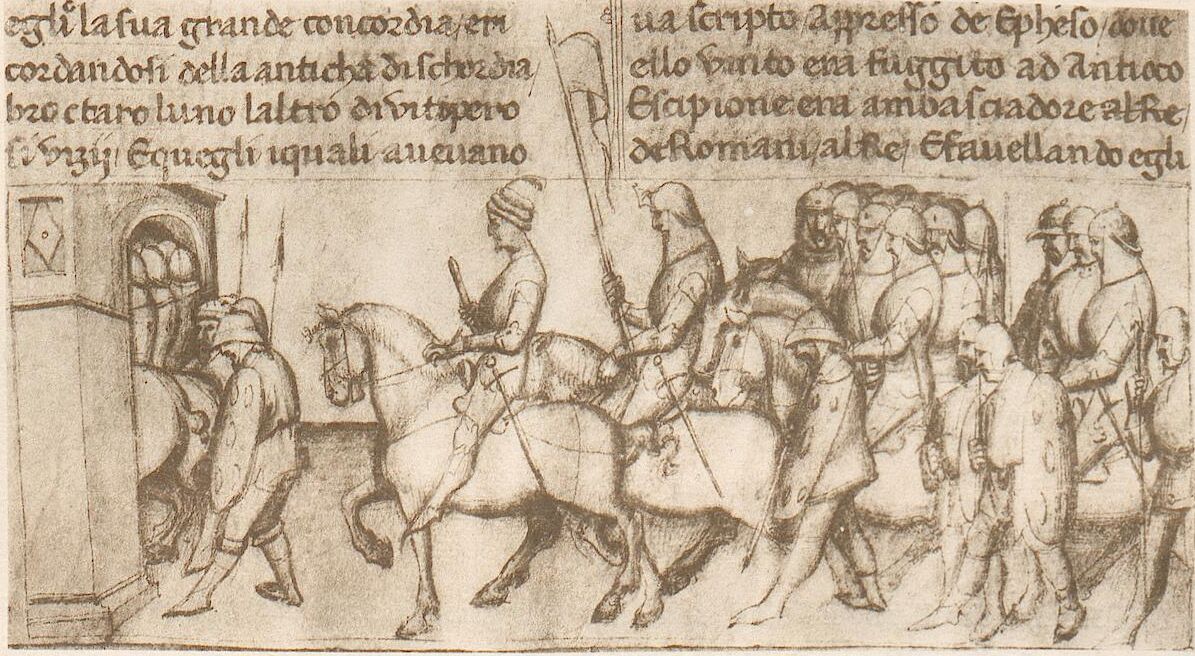 egli la sua grande concordia, e ri
cordandosi della anticha dischordia,
broctaro luno laltro di vitupero
si vizij, Equegli iquali avevano
va scripto Appresso de Epheso, dove
ello vinto era fuggito ad Antioco
Escipione era ambasciadore al Re,
de Romani, al Re, Efavellando egli